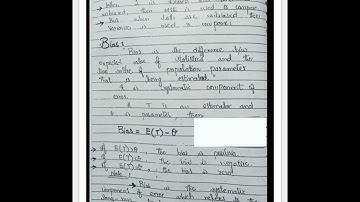 unbiased, then MSE is used to compare.
→ But when both are unbiased then
variance is used to compare.
Bias:
Bias is the difference b/w
expected value of statistics and the
true value of population parameter
that is being estimated.
It is systematic component of
error.
If T is an estimator and
θ is parameter, then
Bias = E(T) - θ
→ If E(T)>θ, the bias is positive
→ If E(T)<θ, the bias is negative
→ If E(T)=θ, the bias is zero
Note:
→ Bias is the systematic
component of error which refers to the